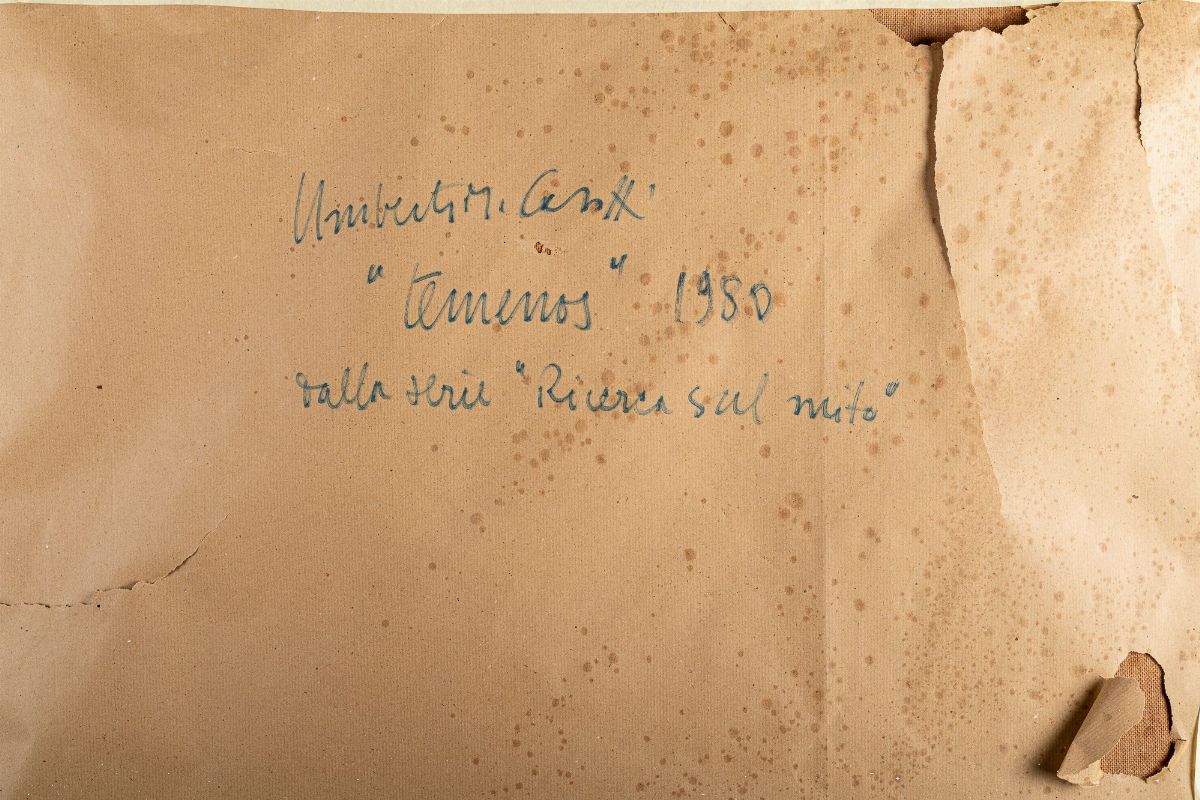 Umberto M. Casotti
"temenos" 1980
dalla serie "Ricerca sul mito"